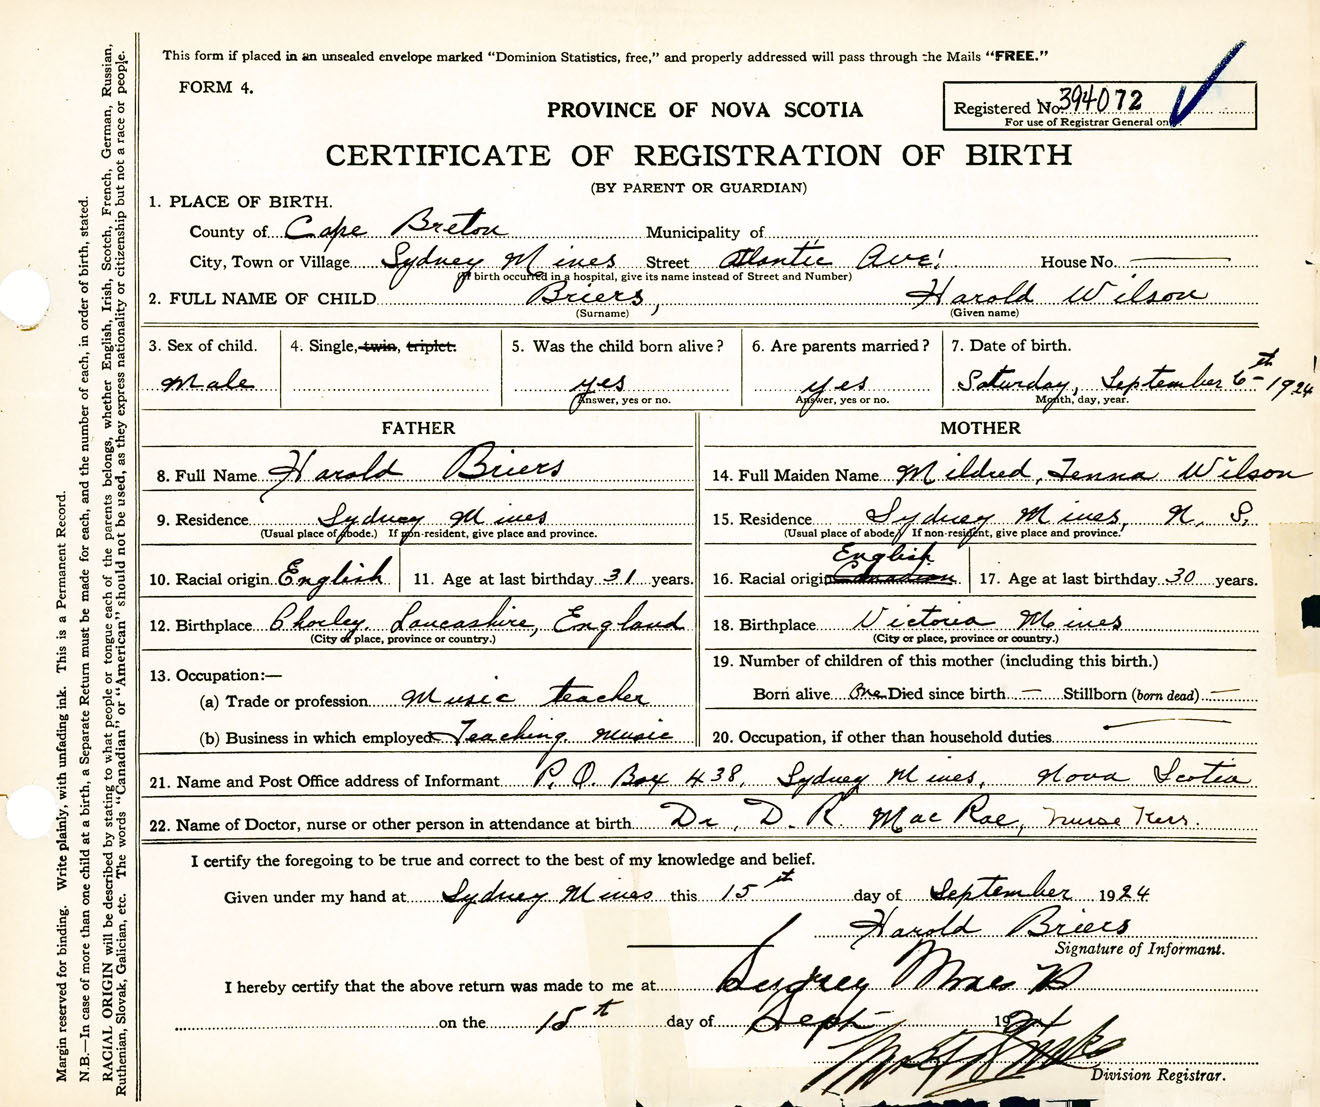 This form if placed in an unsealed envelope marked "Dominion Statistics, free," and properly addressed will pass through the Mails "FREE."
FORM 4.
PROVINCE OF NOVA SCOTIA
Registered No. 394072
For use of Registrar General only.
CERTIFICATE OF REGISTRATION OF BIRTH
(BY PARENT OR GUARDIAN)
1. PLACE OF BIRTH.
County of Cape Breton Municipality of
City, Town or Village Sydney Mines Street Atlantic Ave. House No. —
(If birth occurred in a hospital, give its name instead of Street and Number)
2. FULL NAME OF CHILD Briers, Harold Wilson
(Surname) (Given name)
3. Sex of child. 4. Single, twin, triplet. 5. Was the child born alive? 6. Are parents married? 7. Date of birth.
Male yes yes Saturday, September 6th 1924
Answer, yes or no. Answer, yes or no. Month, day, year.
FATHER
8. Full Name Harold Briers
9. Residence Sydney Mines
(Usual place of abode.) If non-resident, give place and province.
10. Racial origin English 11. Age at last birthday 31 years.
12. Birthplace Chorley, Lancashire, England
(City or place, province or country.)
13. Occupation:—
(a) Trade or profession Music teacher
(b) Business in which employed Teaching music
MOTHER
14. Full Maiden Name Mildred, Jenna Wilson
15. Residence Sydney Mines, N. S.
(Usual place of abode) If non-resident, give place and province.
English
16. Racial origin Canadian 17. Age at last birthday 30 years.
18. Birthplace Victoria Mines
(City or place, province or country.)
19. Number of children of this mother (including this birth.)
Born alive One Died since birth — Stillborn (born dead) —
20. Occupation, if other than household duties —
21. Name and Post Office address of Informant P. O. Box 438, Sydney Mines, Nova Scotia
22. Name of Doctor, nurse or other person in attendance at birth Dr. D. R. MacRae, Nurse Kerr.
I certify the foregoing to be true and correct to the best of my knowledge and belief.
Given under my hand at Sydney Mines this 15th day of September 1924
Harold Briers
Signature of Informant.
I hereby certify that the above return was made to me at Sydney Mines
on the 15th day of Sept 1924
Division Registrar.
Margin reserved for binding. Write plainly, with unfading ink. This is a Permanent Record.
N.B.—In case of more than one child at a birth, a Separate Return must be made for each, and the number of each, in order of birth, stated.
RACIAL ORIGIN will be described by stating to what people or tongue each of the parents belongs, whether English, Irish, Scotch, French, German, Russian,
Ruthenian, Slovak, Galician, etc. The words "Canadian" or "American" should not be used, as they express nationality or citizenship but not a race or people.